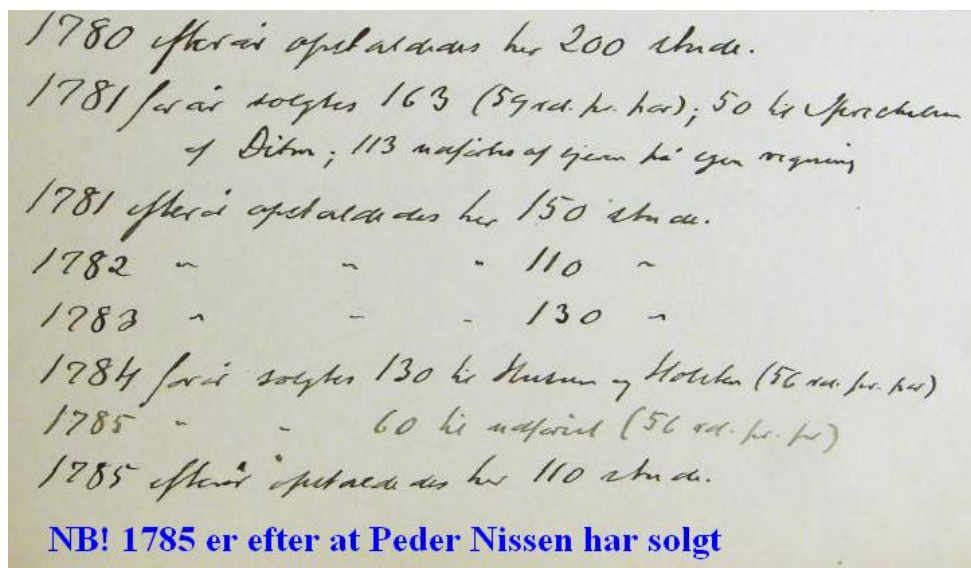 1780 efterår opstaldedes her 200 stude.
1781 forår solgtes 163 (59 rd. pr. par); 50 til
af Ditm; 113 udførtes af ejeren på egen regning
1781 efterår opstaldedes her 150 stude.
1782 " " " 110 "
1783 " " " 130 "
1784 forår solgtes 130 til Husum og Holsten (56 rd. pr. par)
1785 " " 60 til udførsel (56 rd. pr. par)
1785 efterår opstaldedes her 110 stude.
NB! 1785 er efter at Peder Nissen har solgt